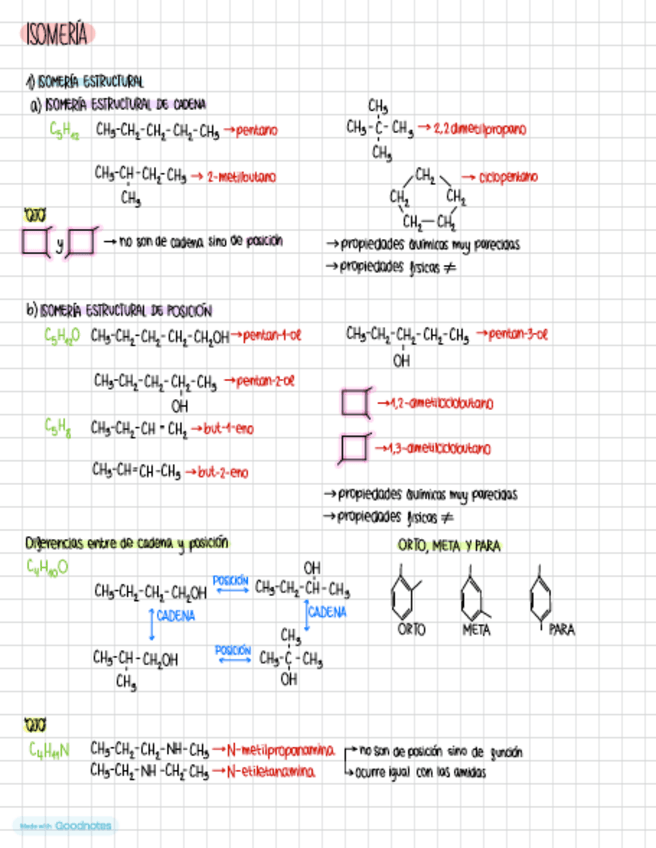 ISOMERÍA
1) ISOMERÍA ESTRUCTURAL
a) ISOMERÍA ESTRUCTURAL DE CADENA
C₅H₁₂ CH₃-CH₂-CH₂-CH₂-CH₃ → pentano
CH₃
CH₃-C-CH₃ → 2,2 dimetilpropano
CH₃
CH₃-CH-CH₂-CH₃ → 2-metilbutano
CH₃
CH₂ → ciclopentano
CH₂ CH₂
CH₂-CH₂
OJO
y → no son de cadena sino de posición
→ propiedades químicas muy parecidas
→ propiedades físicas ≠
b) ISOMERÍA ESTRUCTURAL DE POSICIÓN
C₅H₁₂O CH₃-CH₂-CH₂-CH₂-CH₂OH → pentan-1-ol
CH₃-CH₂-CH₂-CH₂-CH₃ → pentan-3-ol
OH
CH₃-CH₂-CH₂-CH₂-CH₃ → pentan-2-ol
OH
→ 1,2-dimetilciclobutano
C₅H₈ CH₃-CH₂-CH=CH₂ → but-1-eno
→ 1,3-dimetilciclobutano
CH₃-CH=CH-CH₃ → but-2-eno
→ propiedades químicas muy parecidas
→ propiedades físicas ≠
Diferencias entre de cadena y posición
C₄H₁₀O
CH₃-CH₂-CH₂-CH₂OH POSICIÓN
OH
CH₃-CH₂-CH-CH₃
CADENA CADENA
CH₃-CH-CH₂OH POSICIÓN
CH₃
CH₃
CH₃-C-CH₃
OH
ORTO, META Y PARA
ORTO META PARA
OJO
C₄H₁₁N CH₃-CH₂-CH₂-NH-CH₃ → N-metilpropanamina → no son de posición sino de función
CH₃-CH₂-NH-CH₂-CH₃ → N-etiletanamina → ocurre igual con las amidas
Made with Goodnotes